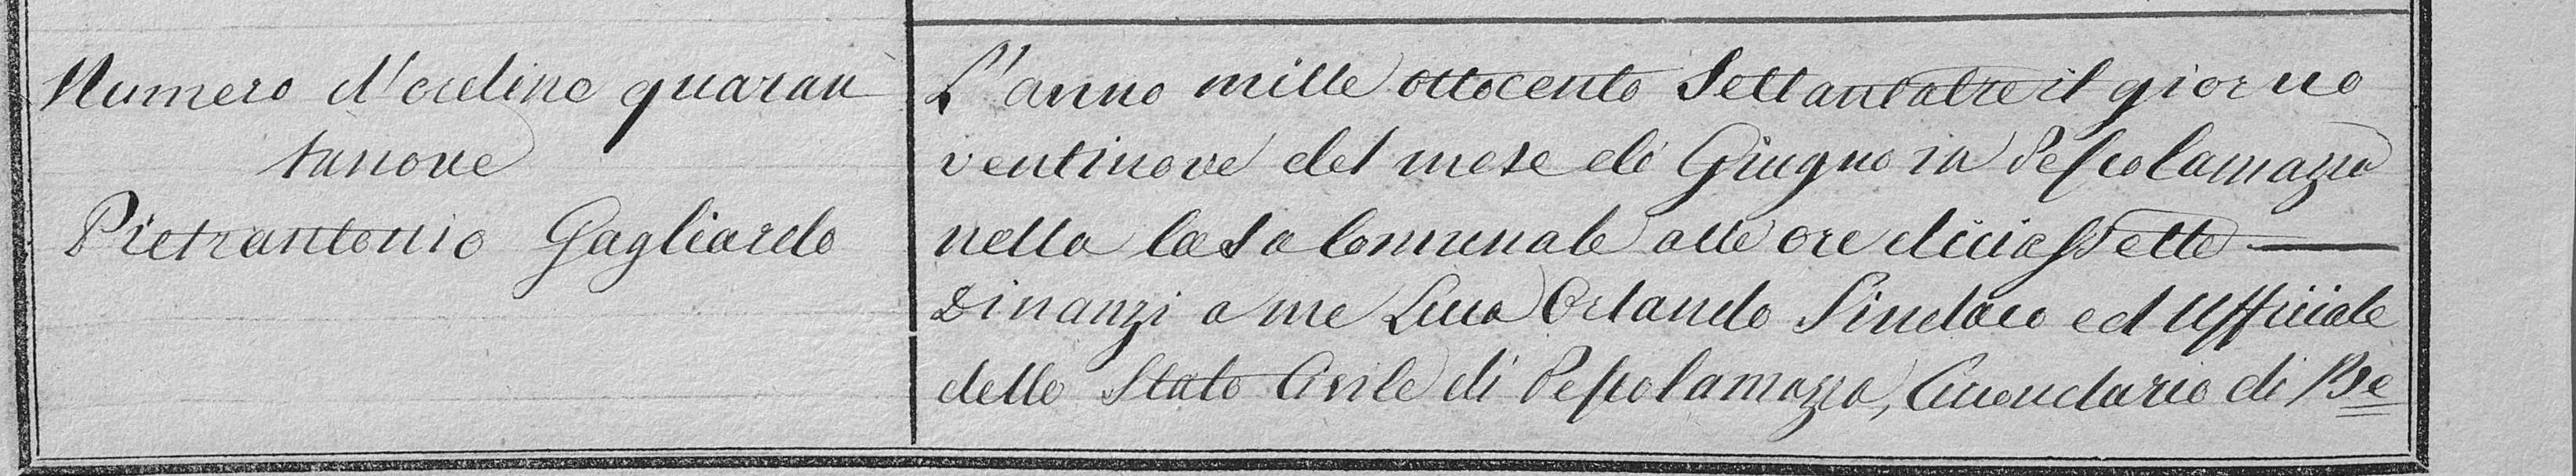 Numero d'ordine quaran
tanove
Pietrantonio Gagliardo
L'anno mille ottocento Settantatre il giorno
ventinove del mese di Giugno in Pescolamazza
nella Casa Comunale alle ore diciassette —
Dinanzi a me Luca Orlando Sindaco ed Ufficiale
dello Stato Civile di Pescolamazza, Circondario di Be